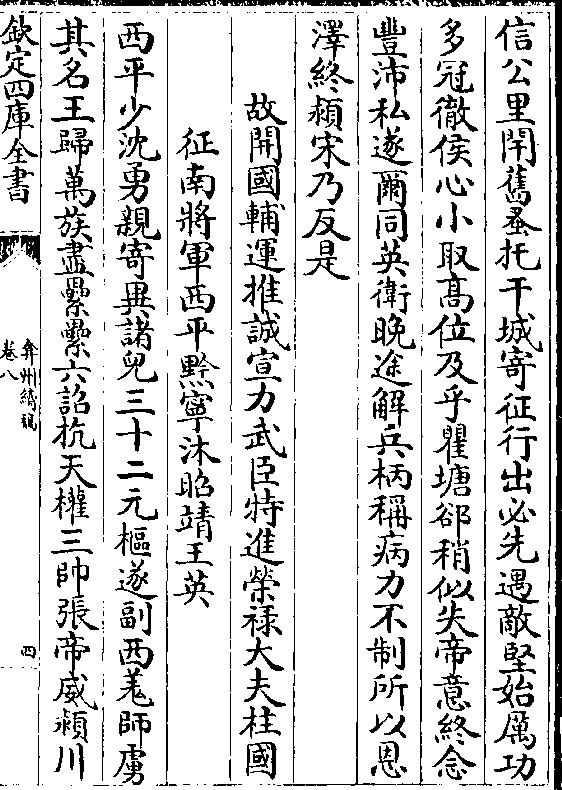 信公里閈舊蚤托干城寄征行出必先遇敵堅始厲功
多冠徹侯心小取髙位及乎瞿塘郤稍似失帝意終念
豐沛私遂爾同英衛晚途解兵柄稱病力不制所以恩
澤終潁宋乃反是
故開國輔運推誠宣力武臣特進榮禄大夫柱國
征南將軍西平黔寧沐昭靖王英
西平少沈勇親寄異諸兒三十二元樞遂副西羌師虜
其名王歸萬族盡纍纍六詔抗天權三帥張帝威潁川
欽定四庫全書
弇州續稿
卷八
四